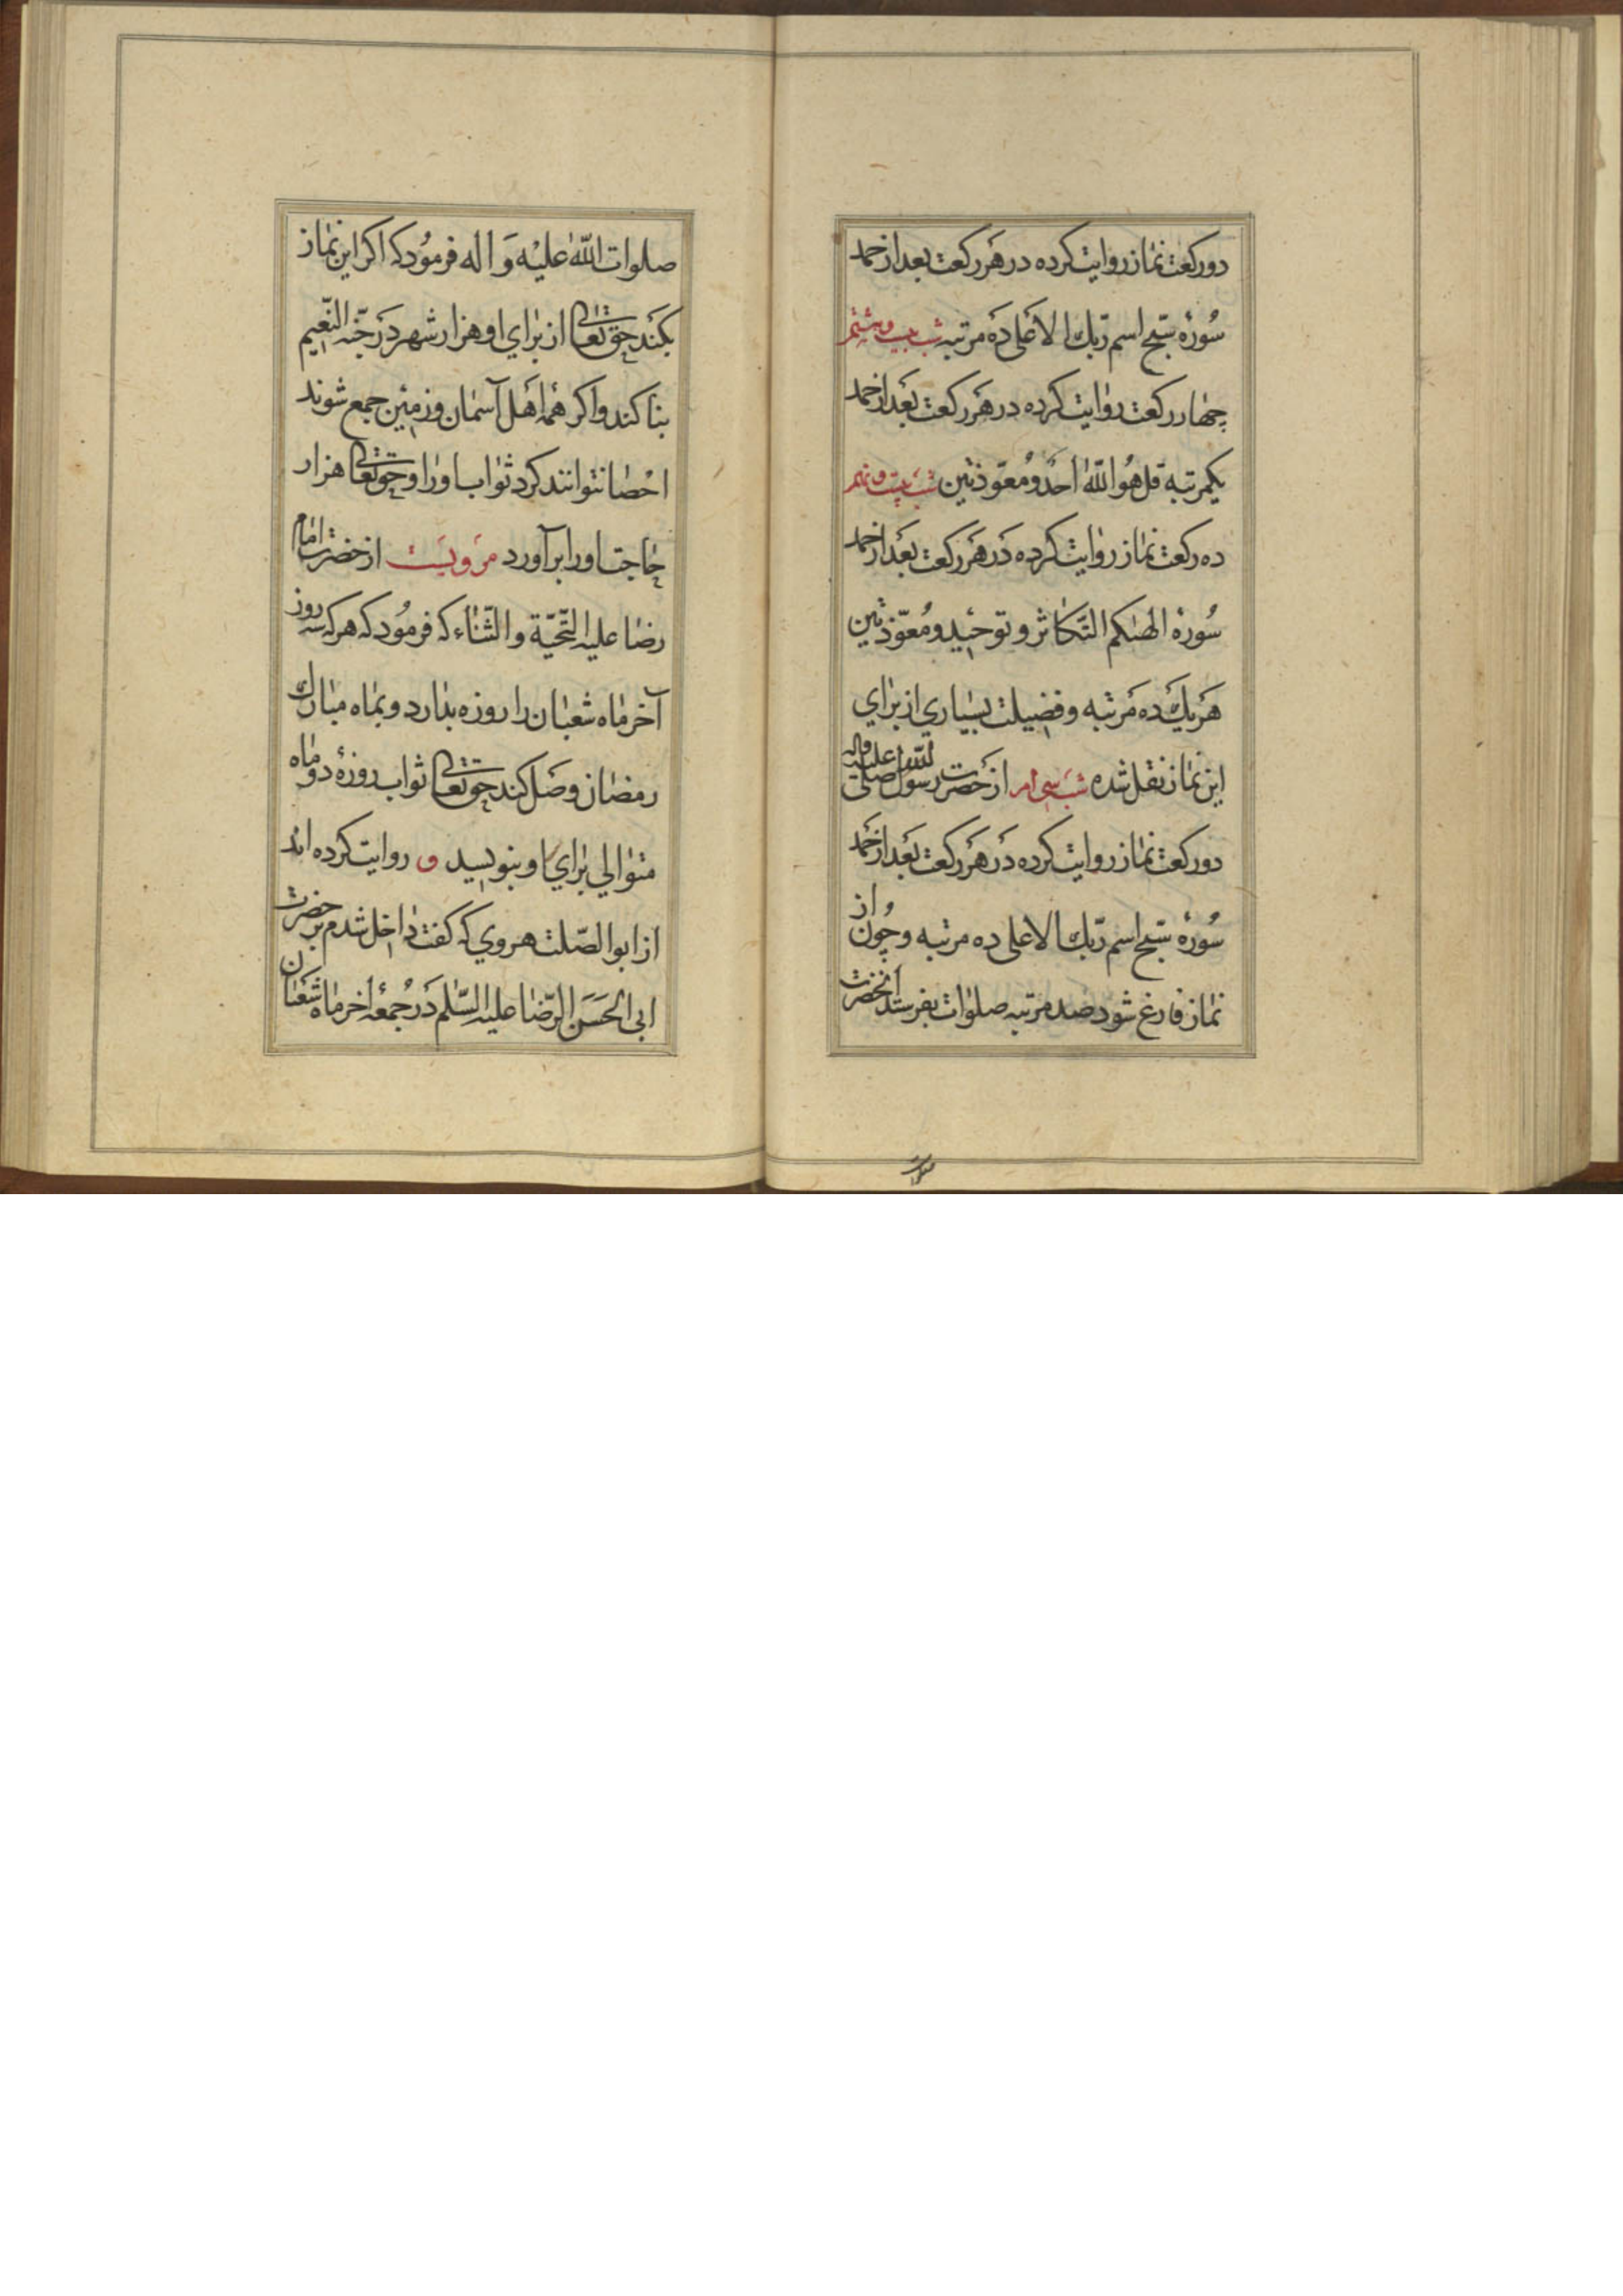 دو ركعت نماز روايت كرده در هر ركعت بعد از حمد
سُورهٔ سبّح اسم ربّك الاعلى ده مرتبه شب بيست و هشتم
چهار ركعت روايت كرده در هر ركعت بعد از حمد
يكمرتبه قل هُو اللّه احد و مُعوّذتين شب بيست و نهم
ده ركعت نماز روايت كرده در هر ركعت بعد از حمد
سُورهٔ الهٰيكم التّكاثر و توحيد و مُعوّذتين
هر يك ده مرتبه و فضيلت بسياري از براي
اين نماز نقل شده شب سي ام از حضرت رسول صلّى اللّه عليه واله
دو ركعت نماز روايت كرده در هر ركعت بعد از حمد
سُورهٔ سبّح اسم ربّك الاعلى ده مرتبه و چُون از
نماز فارغ شود صد مرتبه صلوات بفرستد انحضرت
صلوات
صلوات اللّه عليْه وَ اله فرمُود كه اكر اين نماز
بكند حق تعالى از براي او هزار شهر در جنّه النّعيم
بنا كند و اكر همه اهل آسمان و زمين جمع شوند
احصا نتوانند كرد ثواب او را و حق تعالى هزار
حاجت او را برآورد مرويست از حضرت امام
رضا عليه التّحيّة و الثّناء كه فرمُود كه هر كه سه روز
آخر ماه شعبان را روزه بدارد و بماه مبارك
رمضان وصل كند حق تعالى ثواب روزهٔ دو ماه
متوالي براي او بنويسد و روايت كرده اند
از ابو الصّلت هروي كه كفت داخل شدم بر حضرت
ابي الحَسَن الرّضا عليه السّلم در جُمعهٔ اخر ماه شعبان